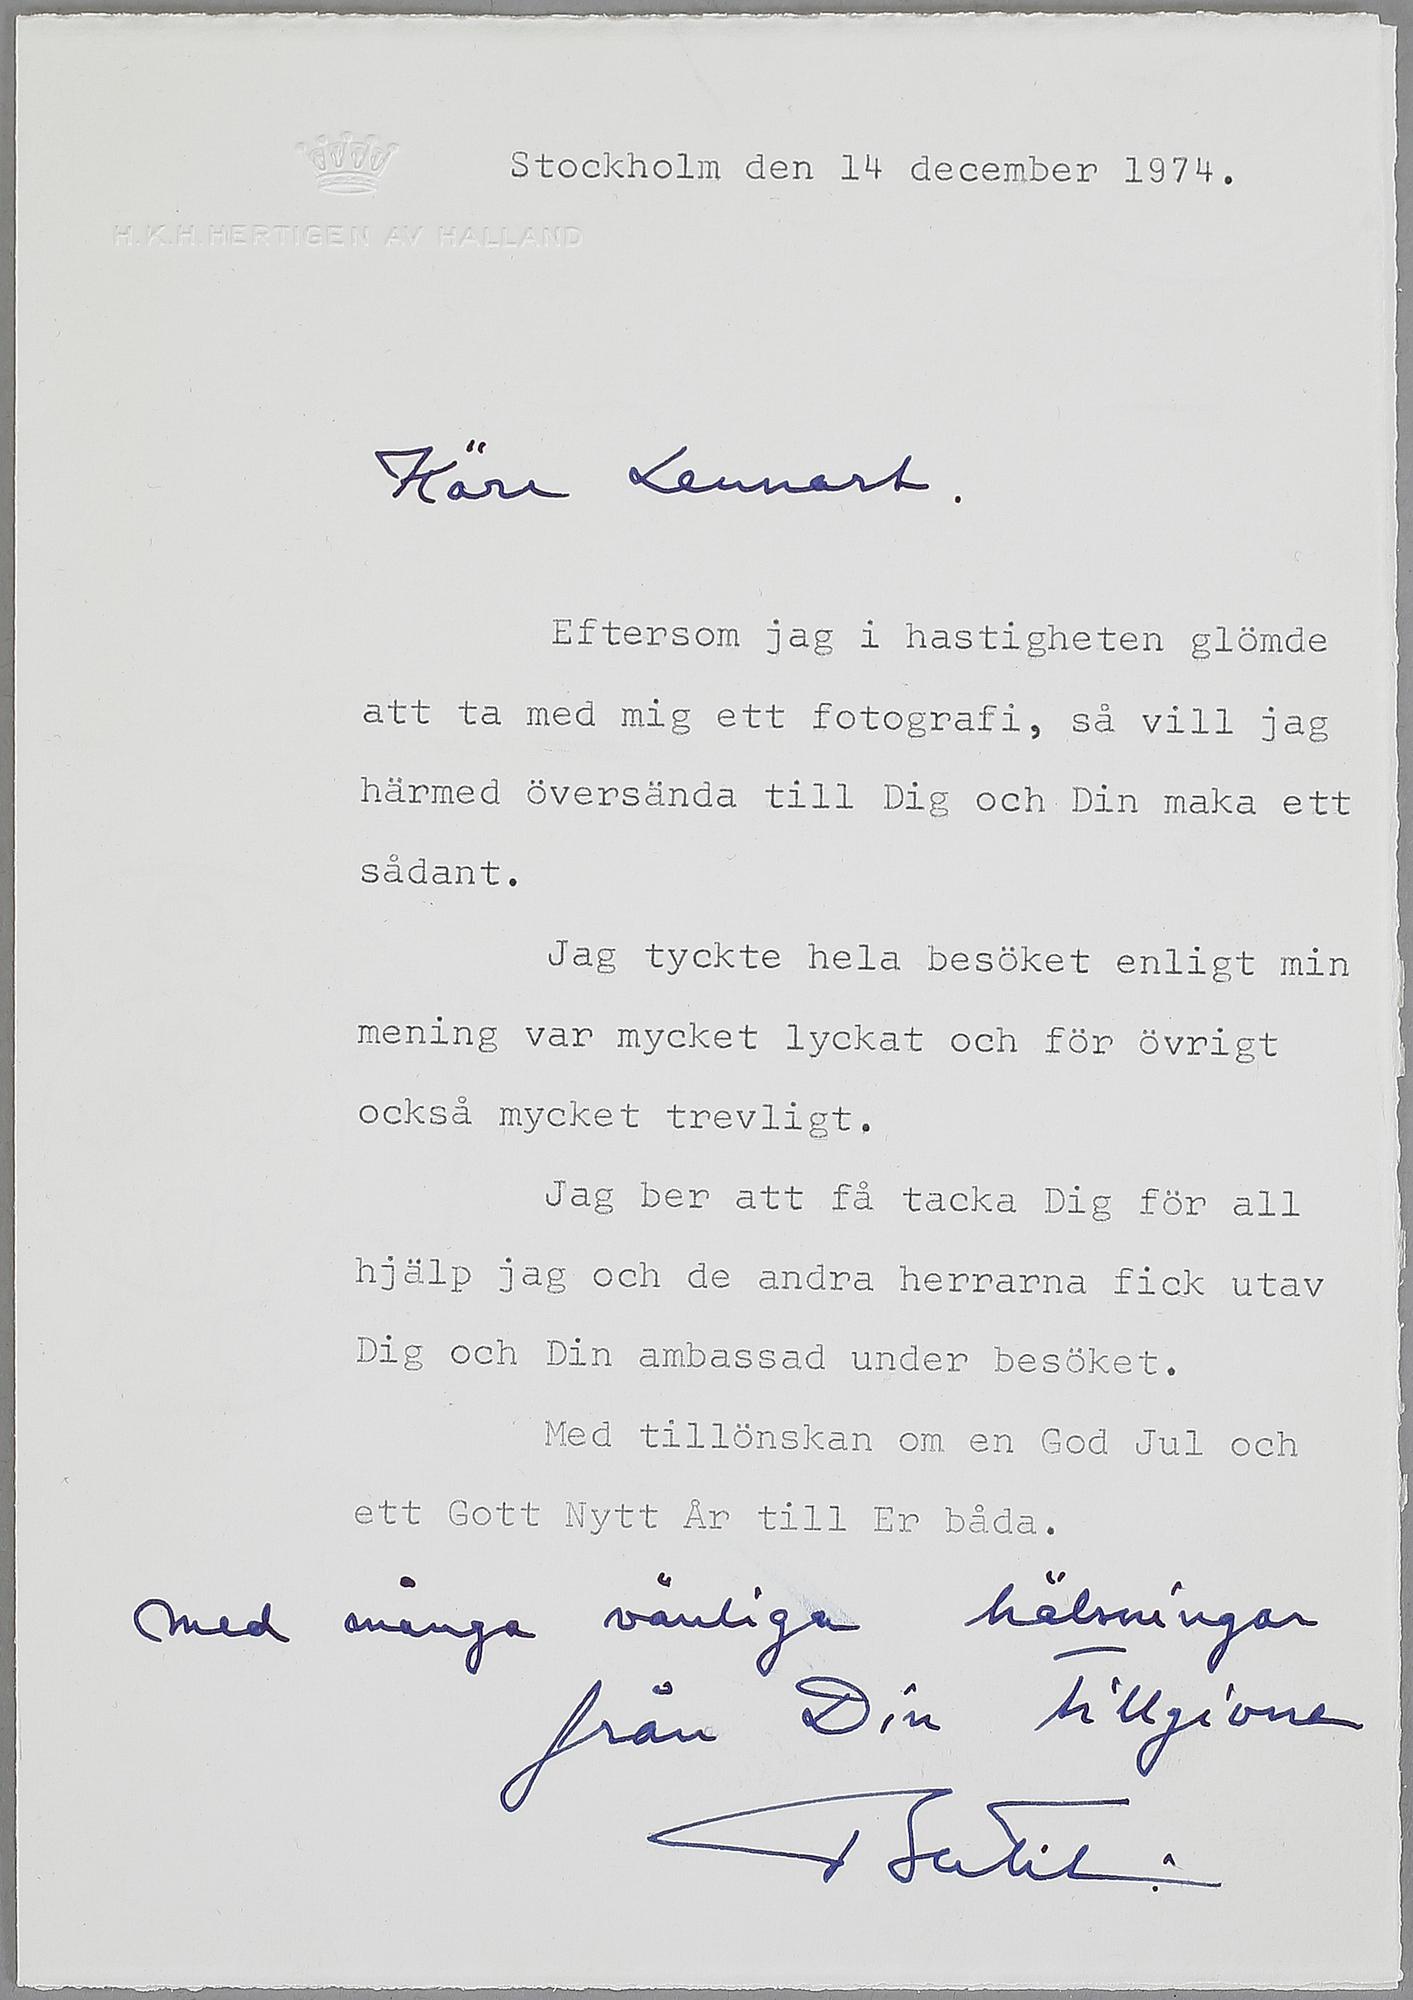 Stockholm den 14 december 1974.
H.K.H. HERTIGEN AV HALLAND
Käre Lennart.
Eftersom jag i hastigheten glömde
att ta med mig ett fotografi, så vill jag
härmed översända till Dig och Din maka ett
sådant.
Jag tyckte hela besöket enligt min
mening var mycket lyckat och för övrigt
också mycket trevligt.
Jag ber att få tacka Dig för all
hjälp jag och de andra herrarna fick utav
Dig och Din ambassad under besöket.
Med tillönskan om en God Jul och
ett Gott Nytt År till Er båda.
Med många vänliga hälsningar
från Din tillgivne
Bertil.